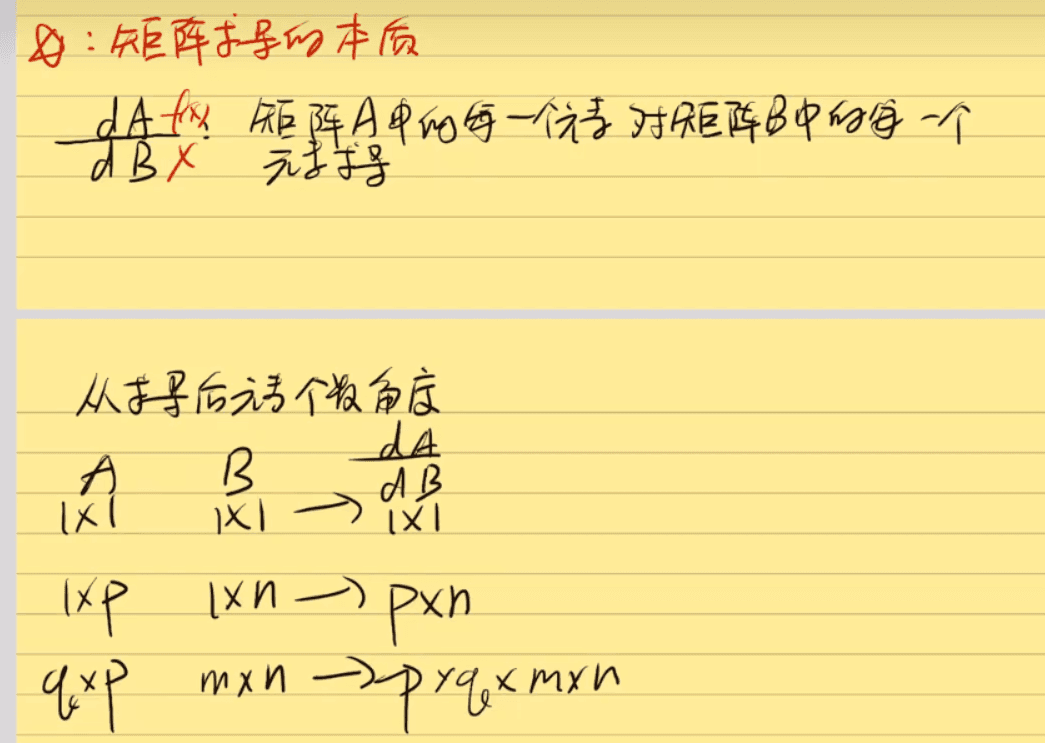 Q：矩阵求导的本质
dA f(x)
dB x : 矩阵A中的每一个元素 对矩阵B中的每一个
元素求导
从求导后元素个数角度
dA
A B dB
1×1 1×1 → 1×1
1×p 1×n → p×n
q×p m×n → p×q×m×n